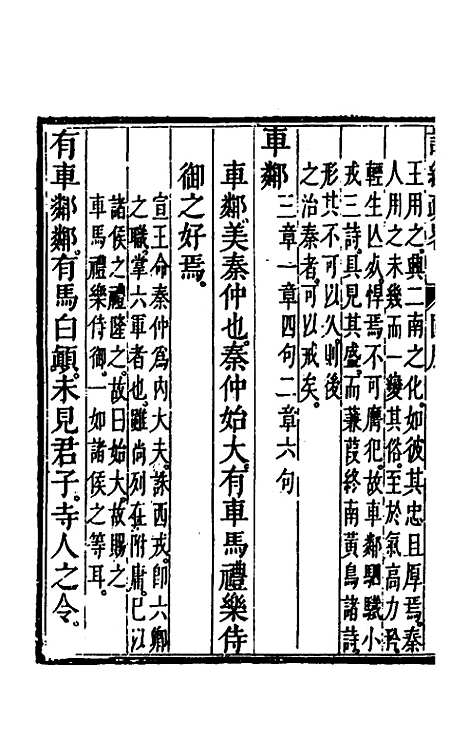 王用之興二南之化如彼其忠且厚焉秦
人用之未幾而一變其俗至於氣高力矜
輕生亾死悍焉不可膺犯故車鄰駟驖小
戎三詩具見其盛而蒹葭終南黃鳥諸詩
形其不可以久則後
之治秦者可以戒矣
車鄰三章一章四句二章六句
車鄰美秦仲也秦仲始大有車馬禮樂侍
御之好焉
宣王命秦仲爲內大夫誅西戎卽六卿
之職掌六軍者也雖尚列在附庸已以
諸侯之禮隆之故曰始大故賜之
車馬禮樂侍御一如諸侯之等耳
有車鄰鄰有馬白顛未見君子寺人之令